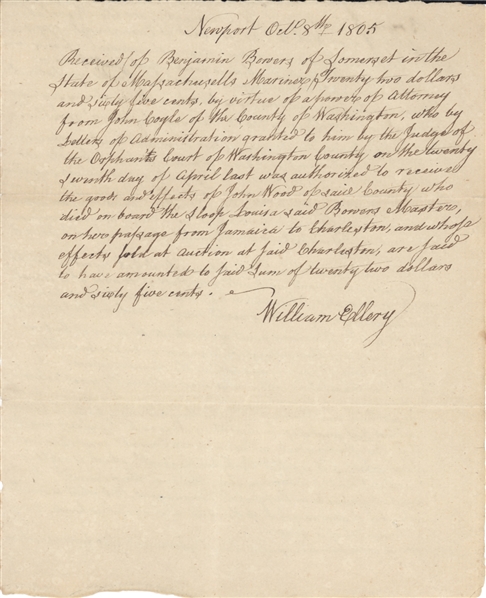 Newport Octr. 8th 1805
Received of Benjamin Bowers of Somerset in the
State of Massachusetts Mariner Twenty two dollars
and sixty five cents, by virtue of a power of Attorney
from John Coyle of the County of Washington, who by
Letters of Administration granted to him by the Judge of
the Orphants Court of Washington County on the twenty
seventh day of April last was authorized to receive
the goods and effects of John Wood of said County who
died on board the Sloop Louisa said Bowers Master,
on her passage from Jamaica to Charleston, and whose
effects sold at auction at said Charleston, are said
to have amounted to said sum of twenty two dollars
and sixty five cents.
William Ellery